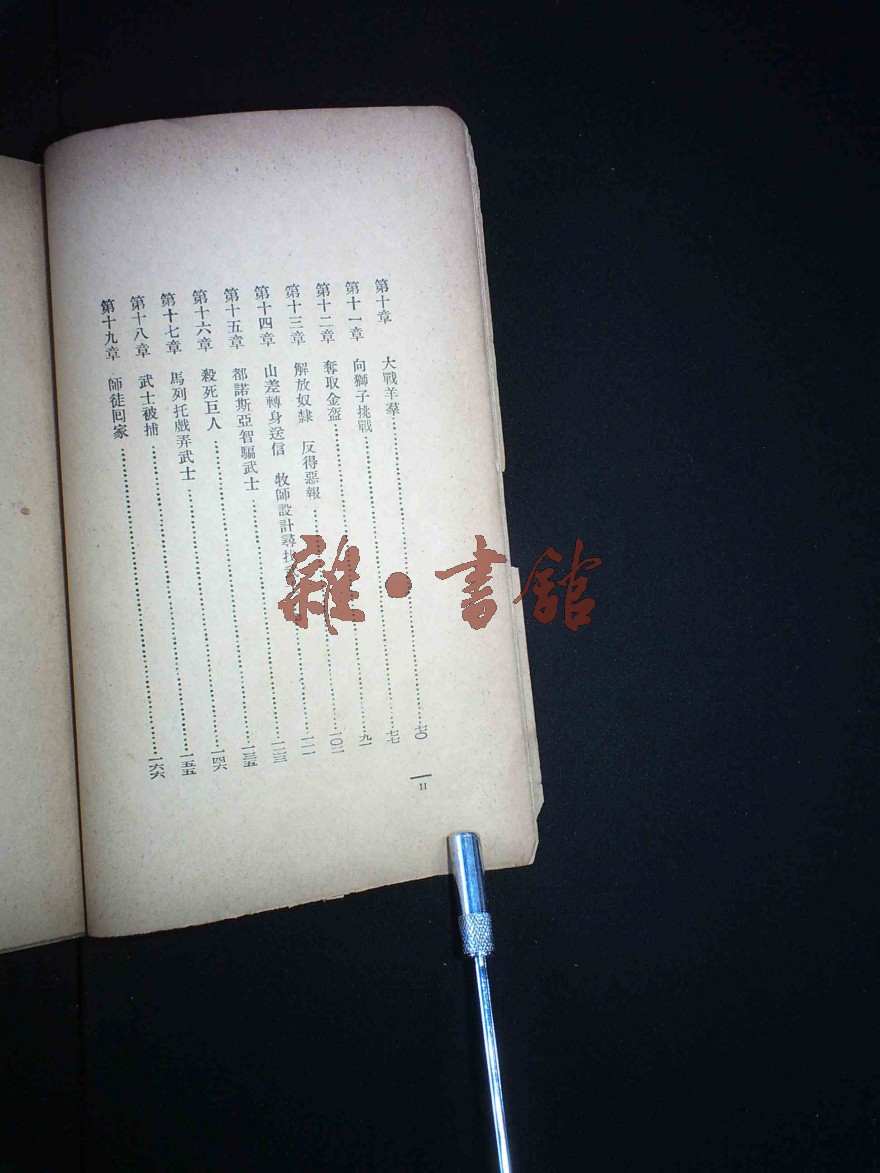 第十章 大戰羊羣……七〇
第十一章 向獅子挑戰……七七
第十二章 奪取金盔……九一
第十三章 解放奴隸 反得惡報……一〇二
第十四章 山差轉身送信 牧師設計尋找……一一一
第十五章 都諾斯亞智騙武士……一二三
第十六章 殺死巨人……一三五
第十七章 馬列托戲弄武士……一四六
第十八章 武士被捕……一五五
第十九章 師徒囘家……一六六
11
雜·書舘